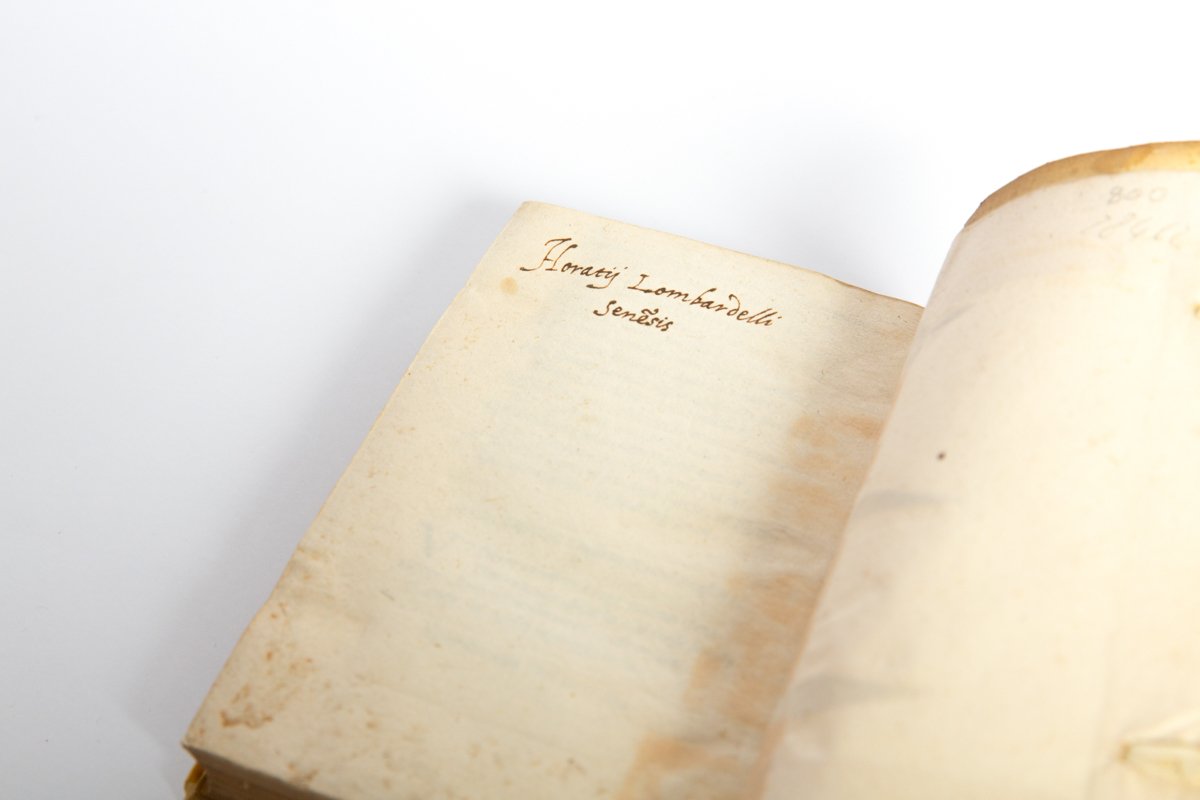 Horatij Lombardelli
Senẽsis
800